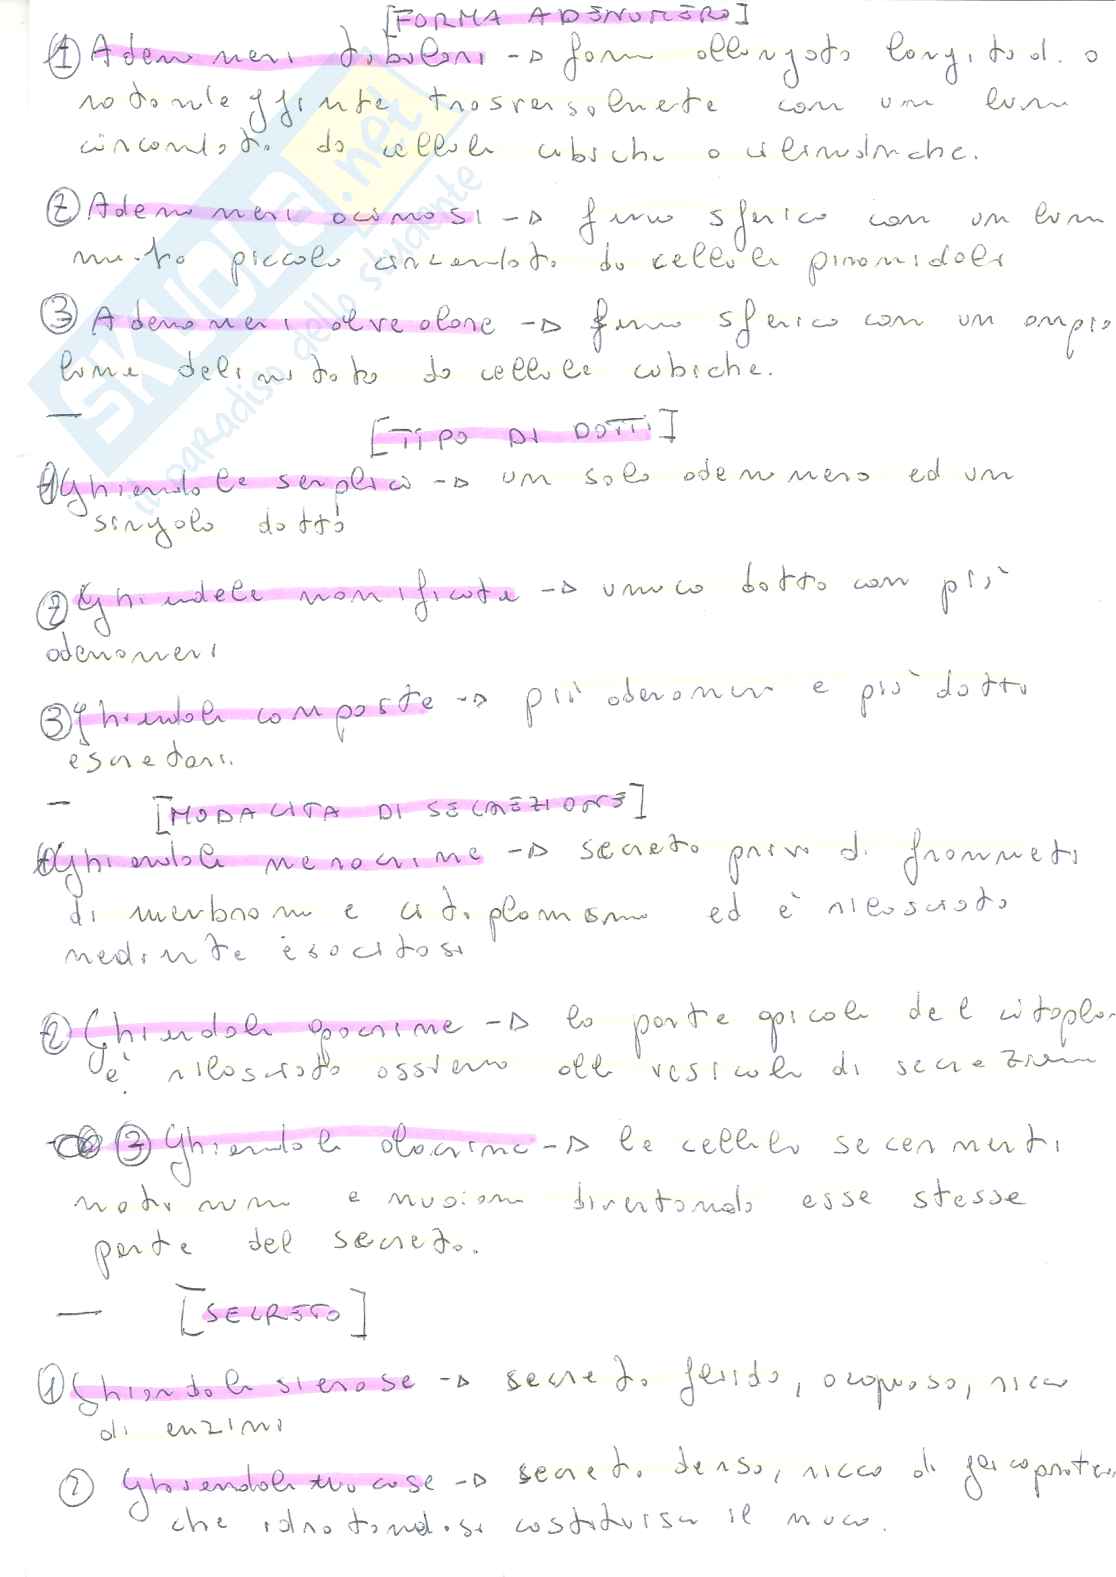 [FORMA ADENOMERO]
① Adenomeri tubulari -> forma allungata longitud. o
rotondeggiante trasversalmente con un lume
circondato da cellule cubiche o cilindriche.
② Adenomeri acinosi -> forma sferica con un lume
molto piccolo circondato da cellule piramidali
③ Adenomeri alveolare -> forma sferica con un ampio
lume delimitato da cellule cubiche.
—
[TIPO DI DOTTI]
① Ghiandole semplici -> un solo adenomero ed un
singolo dotto
② Ghiandole ramificate -> unico dotto con più
adenomeri
③ Ghiandole composte -> più adenomeri e più dotti
escretori.
— [MODALITA DI SECREZIONE]
① Ghiandole merocrine -> secreto privo di frammenti
di membrana e citoplasma ed è rilasciato
mediante esocitosi
② Ghiandole apocrine -> la parte apicale del citopla-
è rilasciata assieme alle vescicole di secrezione
③ Ghiandole olocrine -> le cellule secernenti
maturano e muoiono diventando esse stesse
parte del secreto.
— [SECRETO]
① Ghiandole sierose -> secreto fluido, acquoso, ricco
di enzimi
② Ghiandole mucose -> secreto denso, ricco di glicoprotei.
che idratandosi costituisce il muco.
SKUOLA.net
il paradiso dello studente